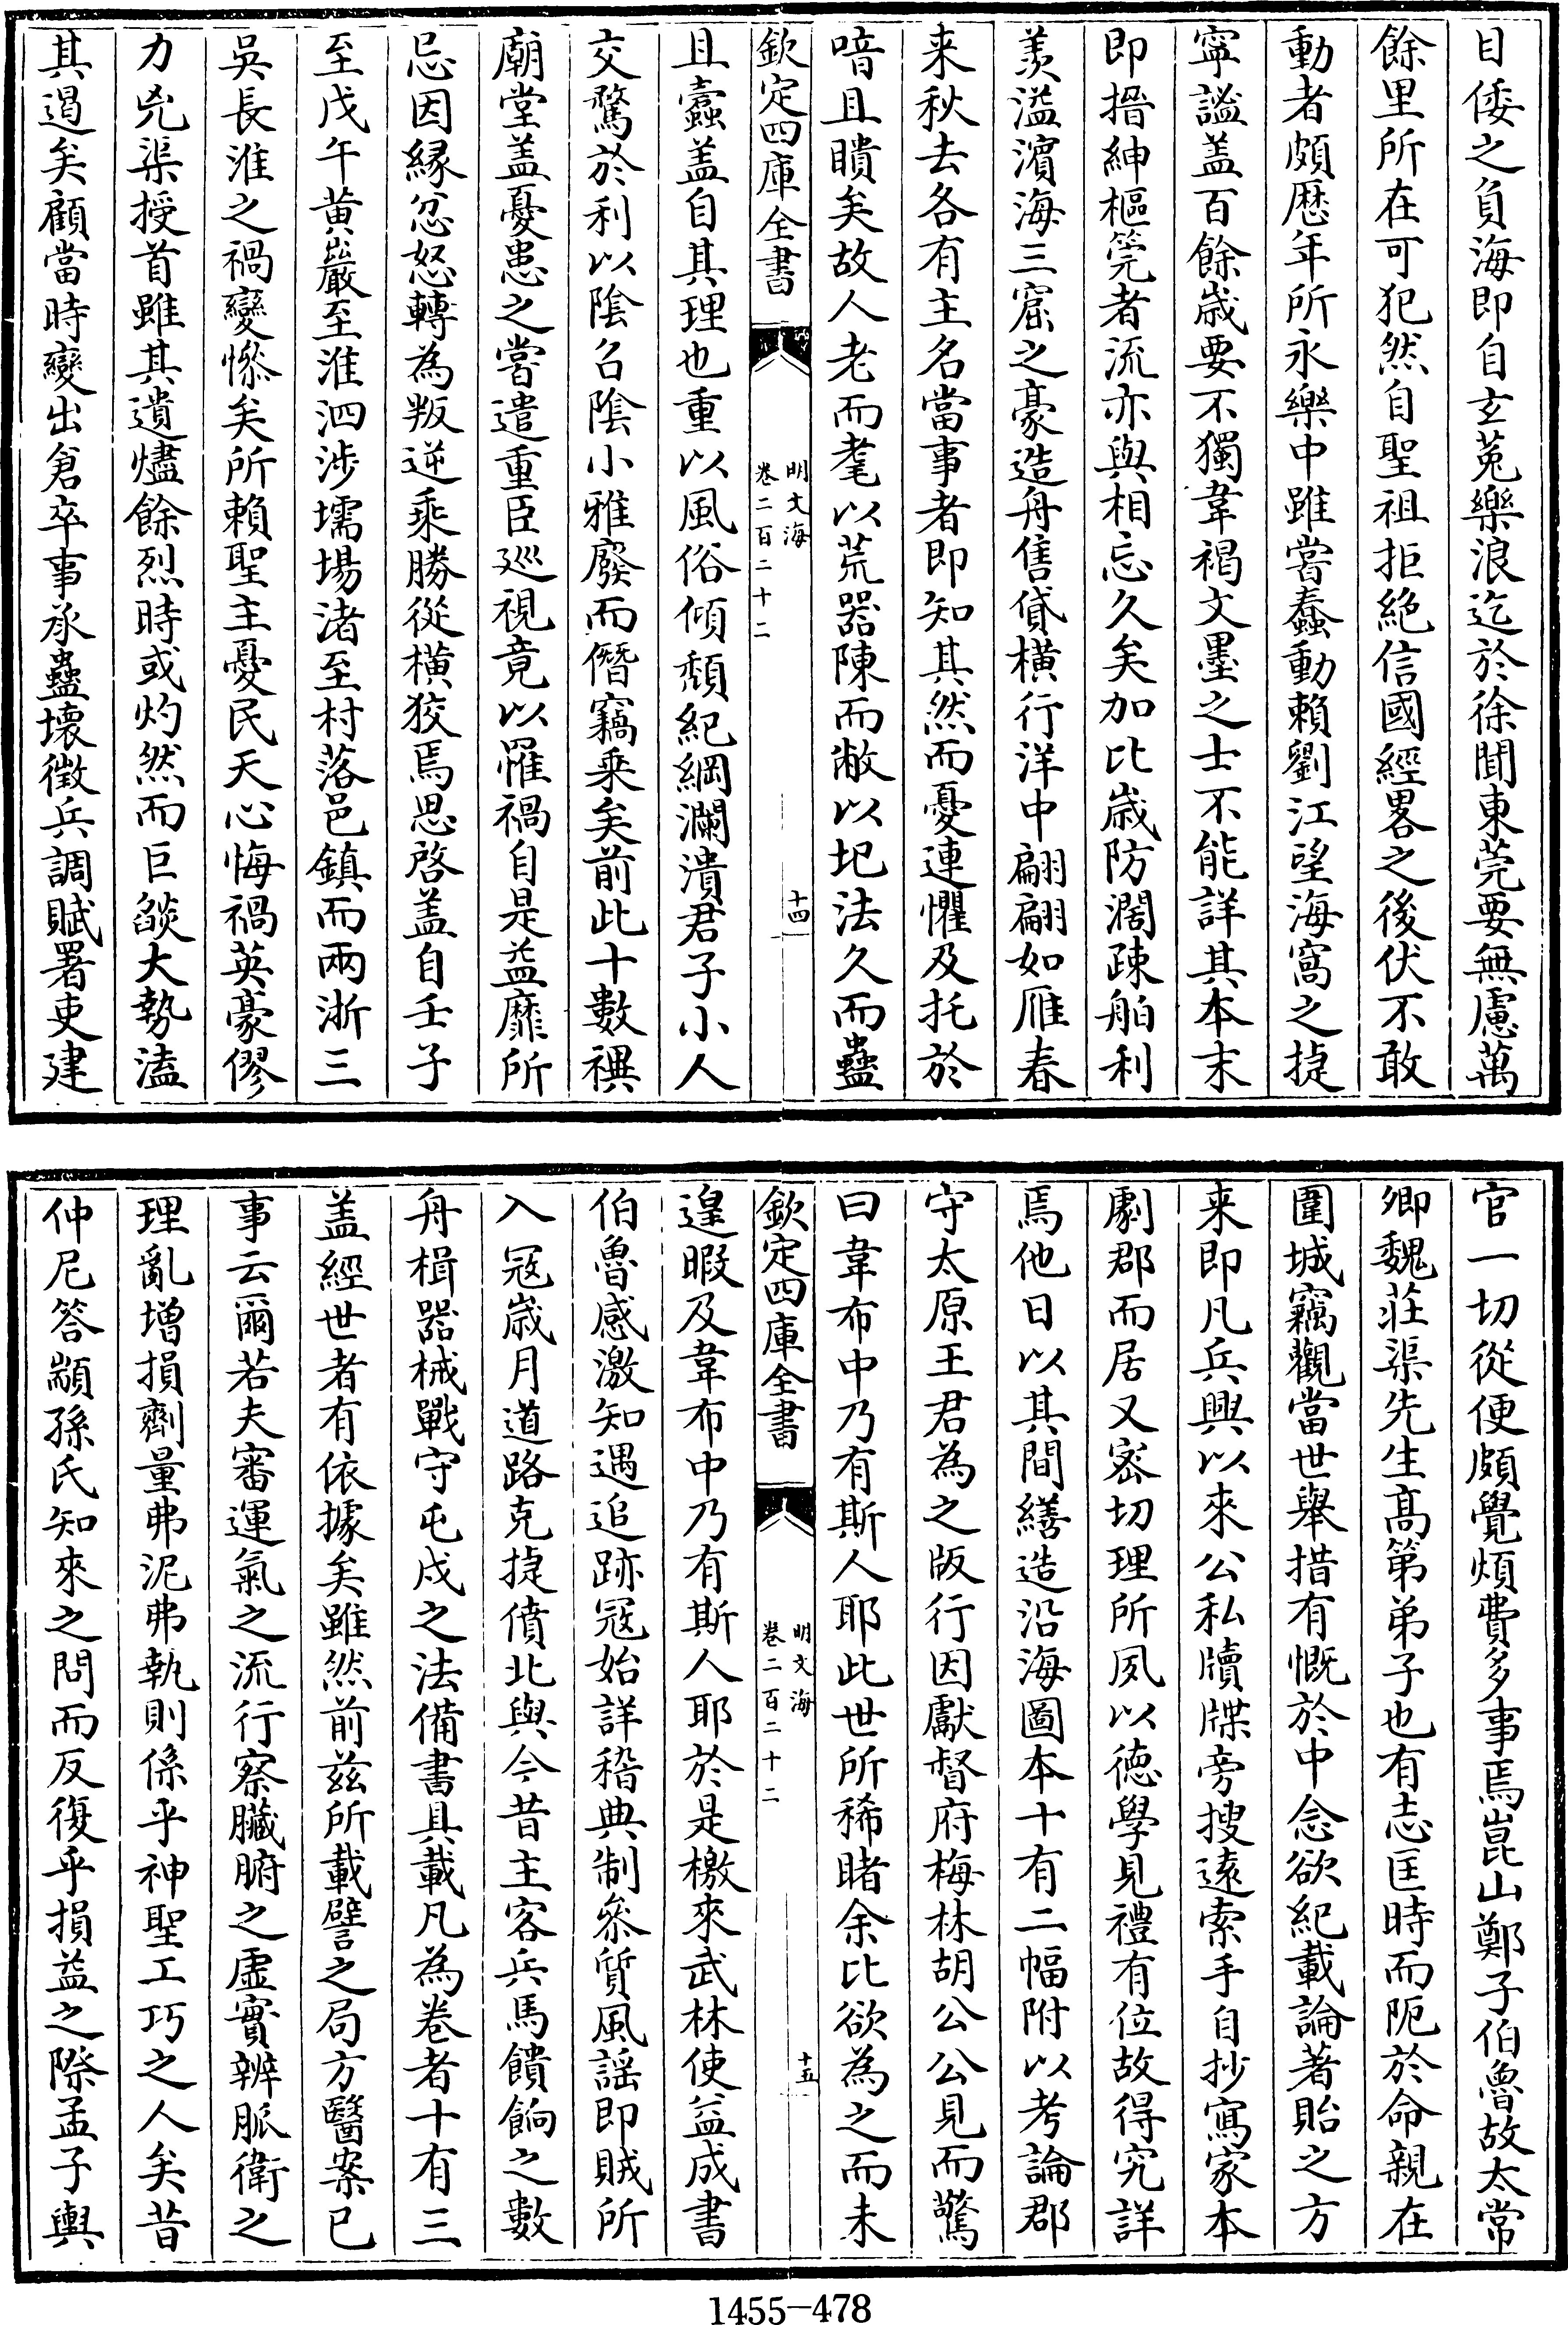 目倭之負海即自玄菟樂浪迄於徐聞東莞要無慮萬
餘里所在可犯然自聖祖拒絶信國經畧之後伏不敢
動者頗厯年所永樂中雖嘗蠢動賴劉江望海窩之捷
寧謐盖百餘歲要不獨韋褐文墨之士不能詳其本末
即搢紳樞筦者流亦與相忘久矣加比歲防濶疎舶利
羨溢濵海三窟之豪造舟售貸橫行洋中翩翩如雁春
来秋去各有主名當事者即知其然而憂連懼及托於
喑且瞶矣故人老而耄以荒器陳而敝以圮法久而蠱
欽定四庫全書
明文海
卷二百二十二
十四
且蠹盖自其理也重以風俗傾頽紀綱瀾潰君子小人
交騖於利以隂召隂小雅廢而僭竊乗矣前此十數禩
廟堂盖憂患之嘗遣重臣廵視竟以罹禍自是益靡所
忌因緣忿怒轉為叛逆乘勝從橫狡焉思啓盖自壬子
至戊午黄巖至淮泗涉壖場渚至村落邑鎮而兩浙三
吳長淮之禍變慘矣所賴聖主憂民天心悔禍英豪僇
力兇渠授首雖其遺燼餘烈時或灼然而巨燄大勢溘
其遏矣顧當時變出倉卒事承蠱壊徵兵調賦署吏建
官一切從便頗覺煩費多事焉崑山鄭子伯魯故太常
卿魏莊渠先生髙第弟子也有志匡時而阨於命親在
圍城竊觀當世舉措有慨於中念欲紀載論著貽之方
来即凡兵興以來公私牘牒旁搜逺索手自抄寫家本
劇郡而居又密切理所夙以德學見禮有位故得究詳
焉他日以其間繕造沿海圖本十有二幅附以考論郡
守太原王君為之版行因獻督府梅林胡公公見而驚
曰韋布中乃有斯人耶此世所稀睹余比欲為之而未
欽定四庫全書
明文海
卷二百二十二
十五
遑暇及韋布中乃有斯人耶於是檄來武林使益成書
伯魯感激知遇追跡冦始詳稽典制叅質風謡即賊所
入冦歲月道路克捷僨北與今昔主客兵馬饋餉之數
舟楫器械戰守屯戍之法備書具載凡為巻者十有三
盖經世者有依據矣雖然前兹所載譬之局方醫案已
事云爾若夫審運氣之流行察臓腑之虚實辨脈衛之
理亂增損劑量弗泥弗執則係乎神聖工巧之人矣昔
仲尼答顓孫氏知來之問而反復乎損益之際孟子輿
1455—478